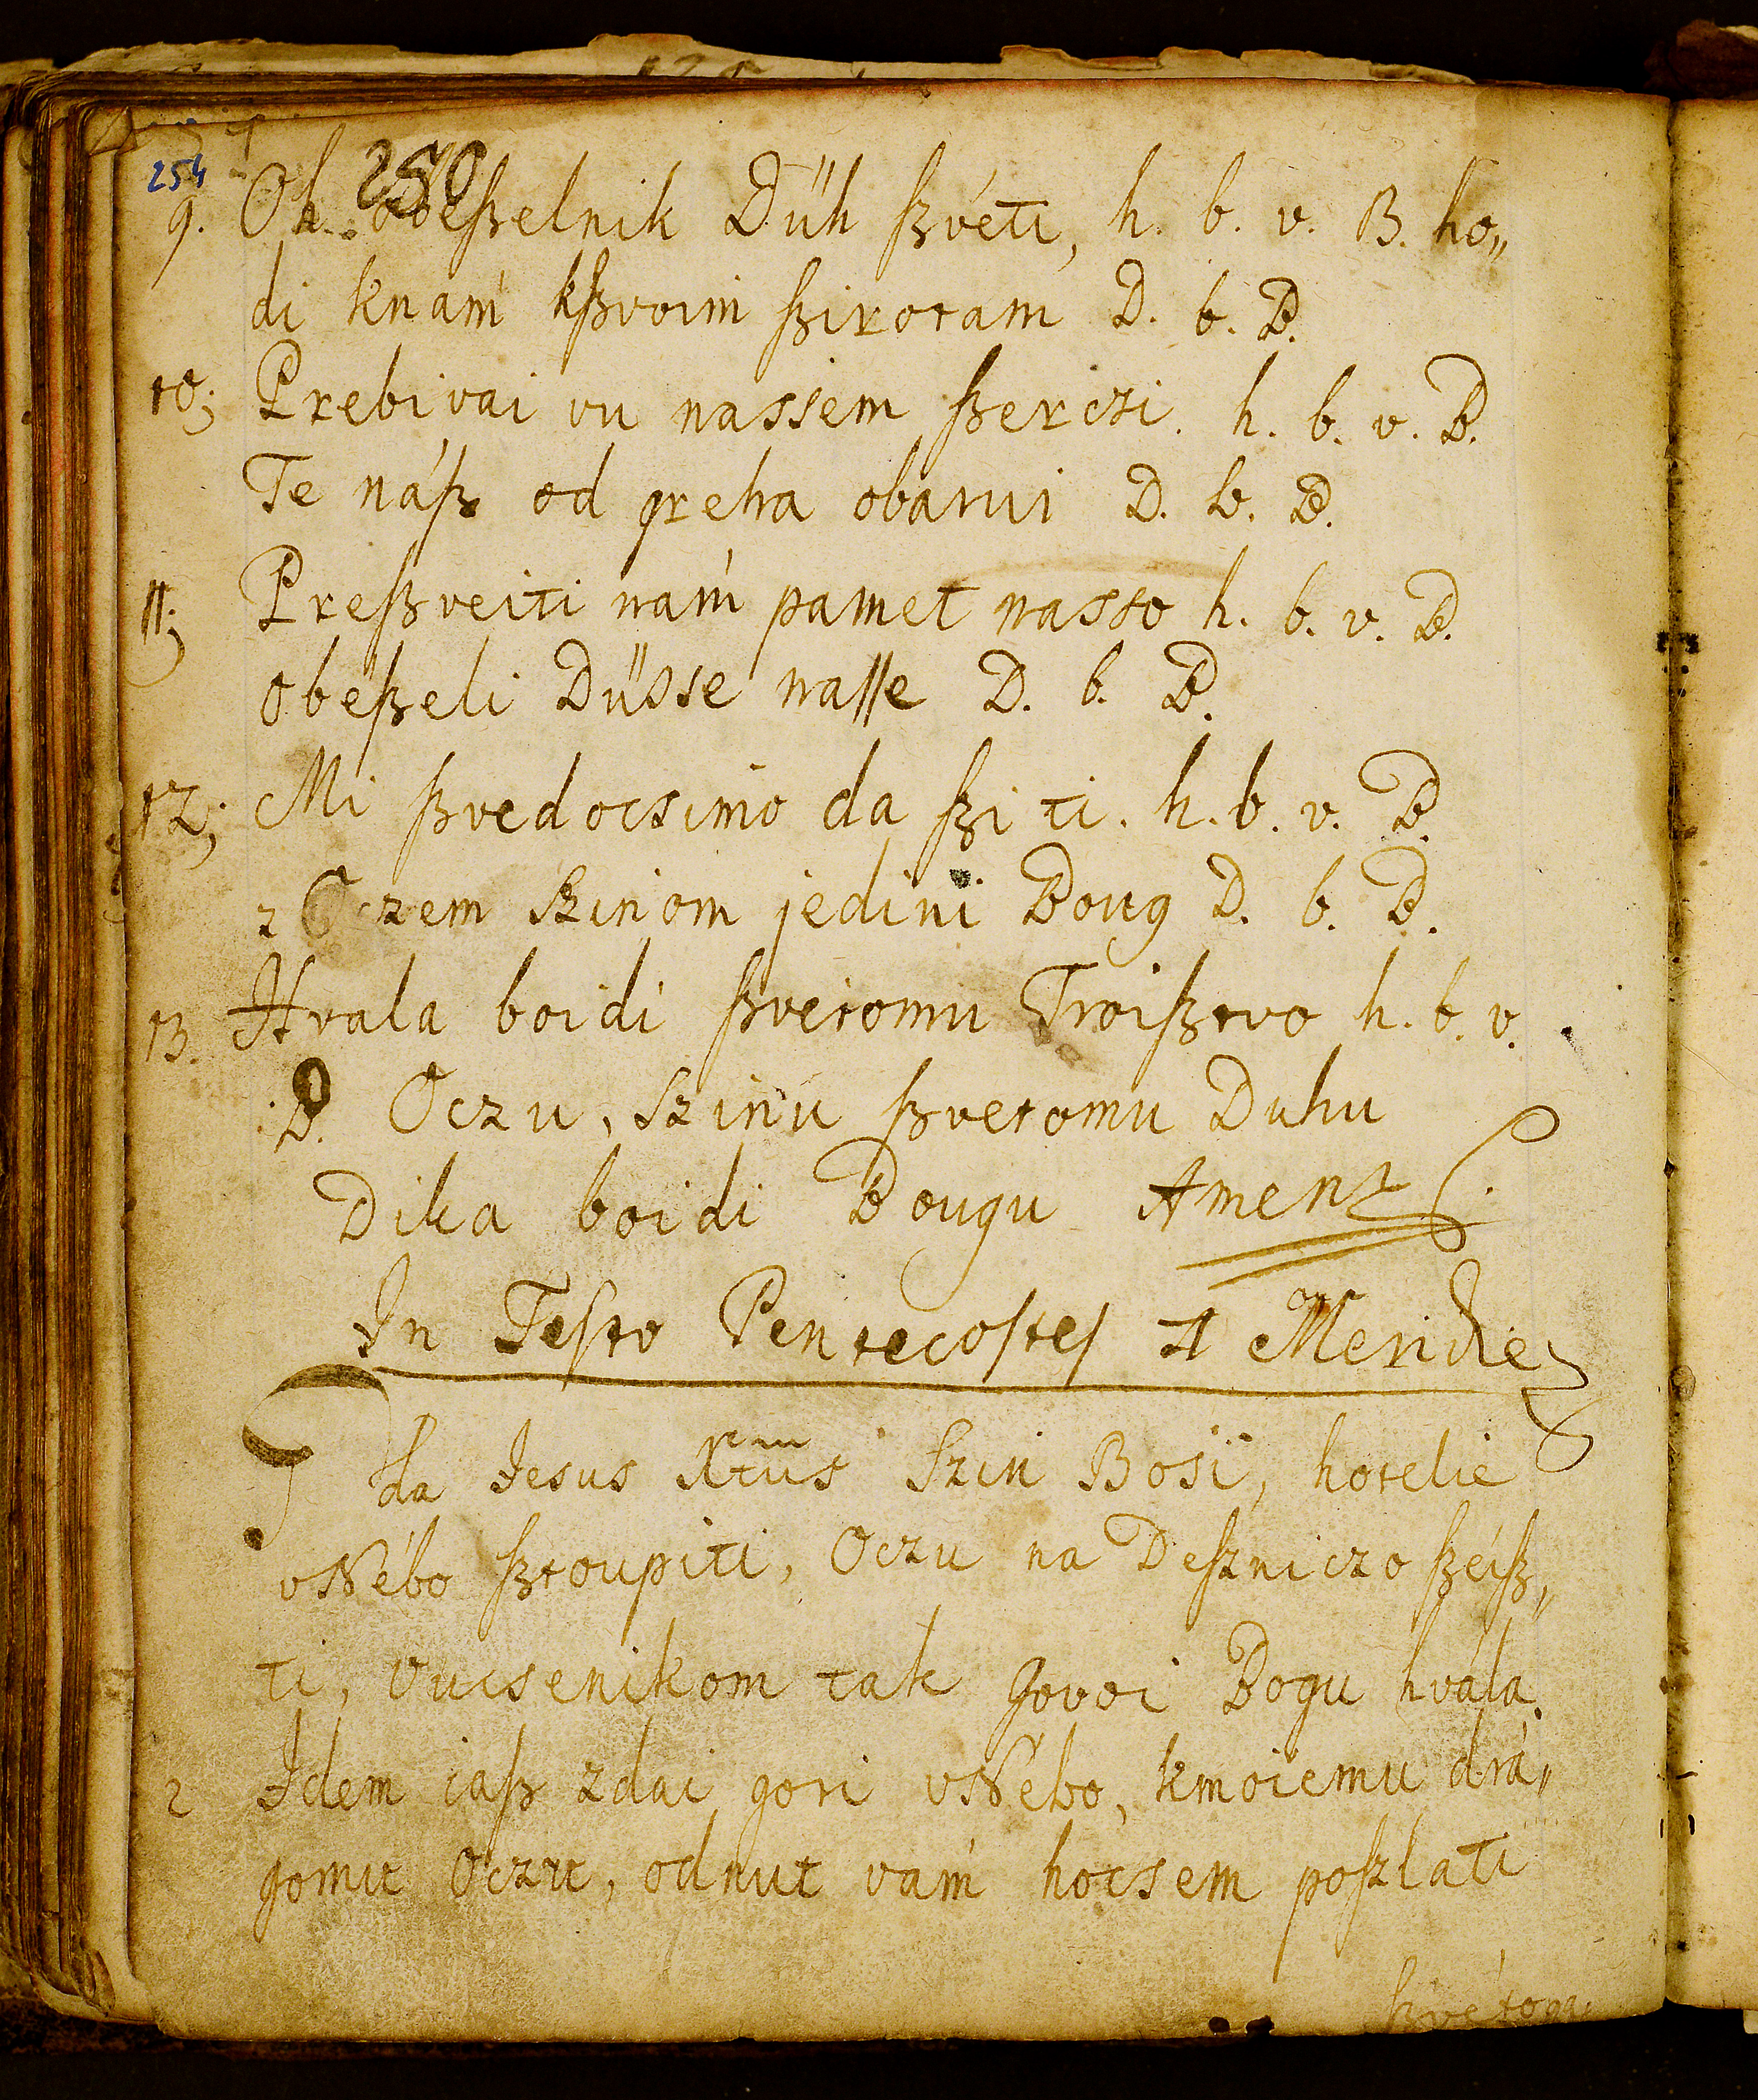 254 250
9. Oh obeßelnik Düh ßvéti, h. b. v. B. ho„
di knám kßvoim ßirotam D. b. B.
10; Prebivai vu nassem ßerczi. h. b. v. B.
Te náß od greha obarui D. b. B.
11; Preßveiti nám pamet nasso h. b. v. B.
obeßeli Düsse naſſe D. b. B.
12; Mi ßvedocsimo da ßi ti. h. b. v. B.
z Oczem Szinom jedini Boug D. b. B.
13. Hvala boidi ßvetomu Troißtvo h. b. v.
B. Oczu, Szinu ßvetomu Duhu
Dika boidi Bougu Amen
In Feſto Pentecoſteſ A Meridie
Gda Jesus Xtus Szin Bosi, hotelie
vNébo ßtoupiti, Oczu na Deſzniczo ßéiß„
ti, vucsenikom tak govoi Bogu hvála.
2 Idem iaß zdai gori vNébo, kmoiemu drá„
gomu Oczu, odnut vám hocsem poſzlati
ßvétoga